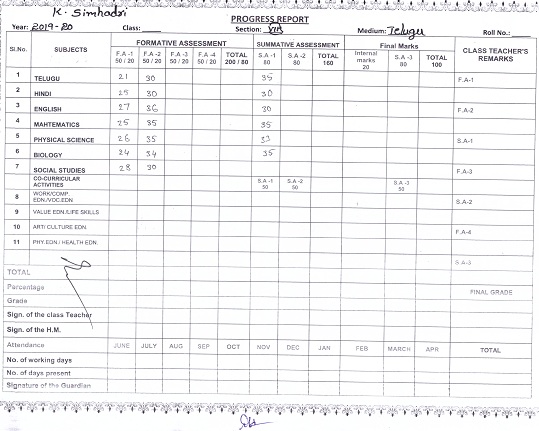 K. Simhadri
PROGRESS REPORT
Year: 2019-20 Class: Section: VIII Medium: Telugu Roll No.:
Sl.No. SUBJECTS FORMATIVE ASSESSMENT SUMMATIVE ASSESSMENT Final Marks CLASS TEACHER'S REMARKS
F.A -1 50 / 20 F.A -2 50 / 20 F.A -3 50 / 20 F.A -4 50 / 20 TOTAL 200 / 80 S.A -1 80 S.A -2 80 TOTAL 160 Internal marks 20 S.A -3 80 TOTAL 100
1 TELUGU 21 30 35 F.A-1
2 HINDI 25 30 30
3 ENGLISH 27 36 30 F.A-2
4 MAHTEMATICS 25 35 35
5 PHYSICAL SCIENCE 26 35 33 S.A-1
6 BIOLOGY 24 34 35
7 SOCIAL STUDIES 28 30 F.A-3
CO-CURRICULAR ACTIVITIES S.A -1 50 S.A -2 50 S.A -3 50
8 WORK/COMP. EDN./VOC.EDN. S.A-2
9 VALUE EDN./LIFE SKILLS
10 ART/ CULTURE EDN. F.A-4
11 PHY.EDN./ HEALTH EDN.
S.A-3
TOTAL
Percentage FINAL GRADE
Grade
Sign. of the class Teacher
Sign. of the H.M.
Attendance JUNE JULY AUG SEP OCT NOV DEC JAN FEB MARCH APR TOTAL
No. of working days
No. of days present
Signature of the Guardian